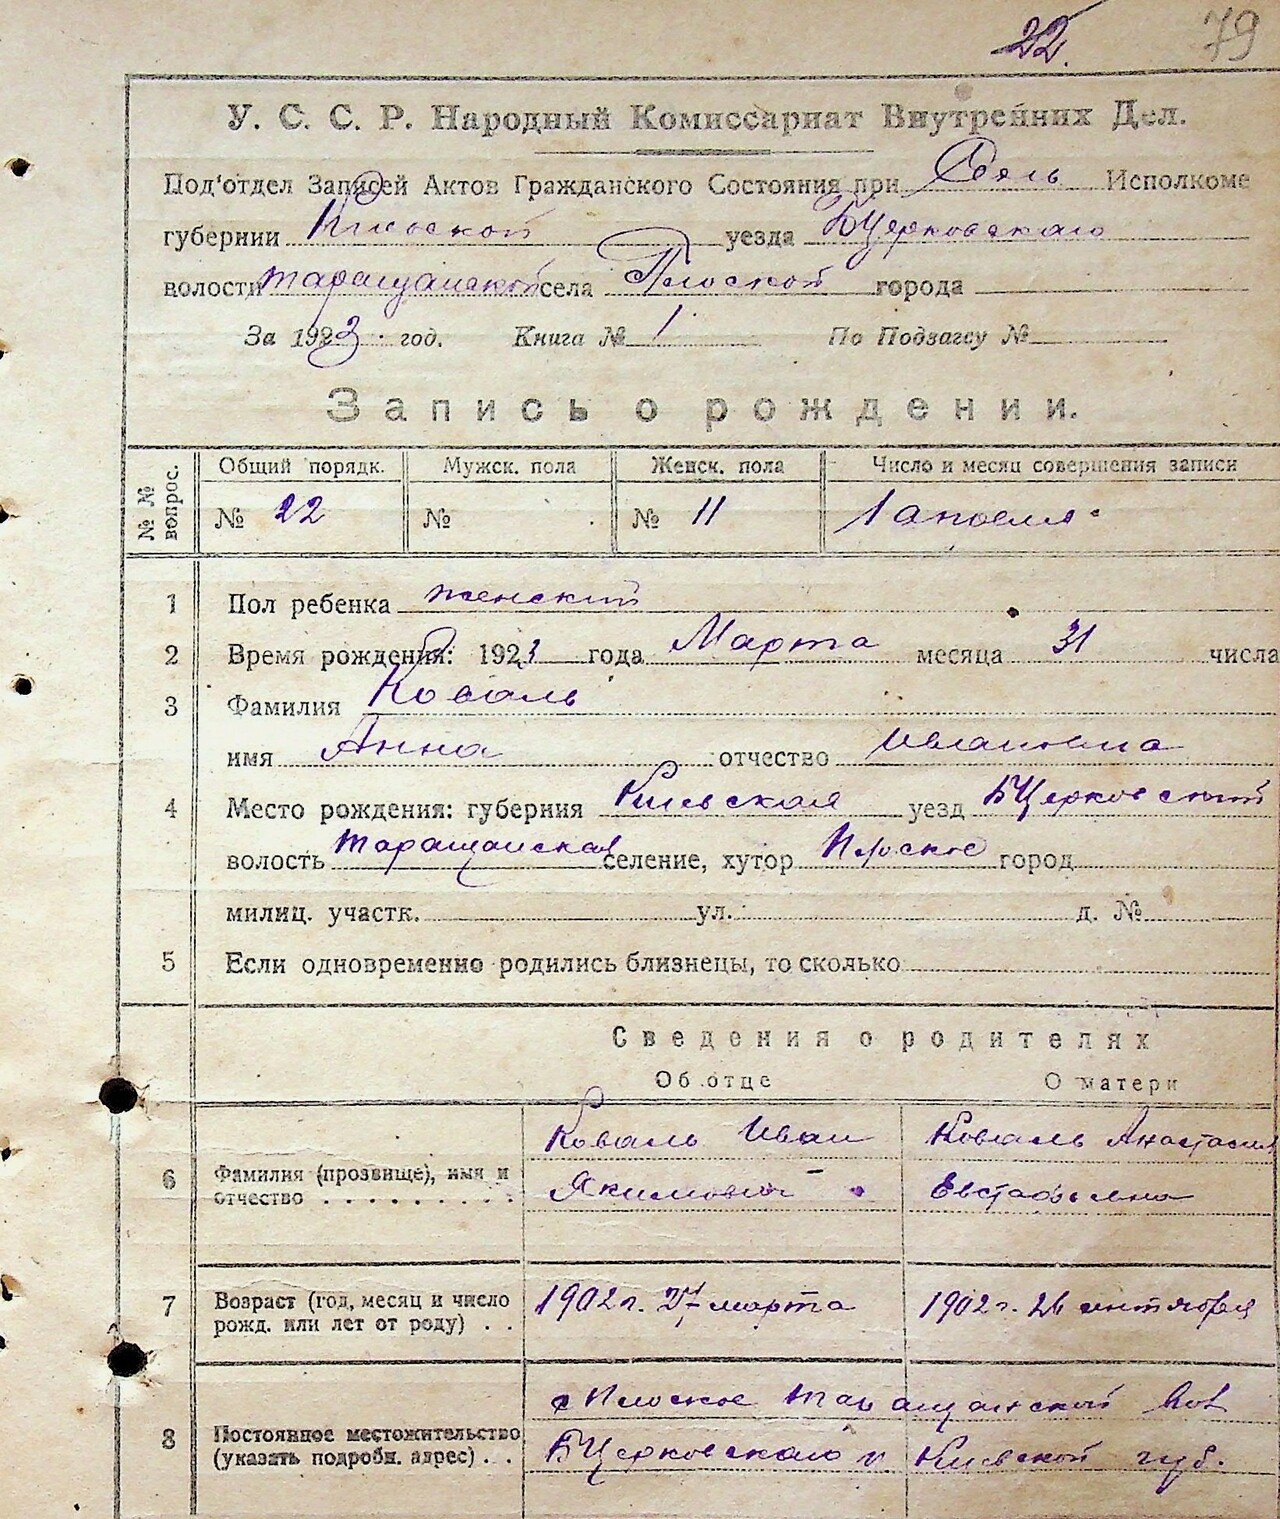 22. 79
У. С. С. Р. Народный Комиссариат Внутрейних Дел.
Под'отдел Записей Актов Гражданского Состояния при Сель Исполкоме
губернии Киевской уезда БЦерковского
волости Таращанской села Плоской города
За 1923 год. Книга № 1 По Подзагсу №
Запись о рождении.
№ № вопрос. Общий порядк. Мужск. пола Женск. пола Число и месяц совершения записи
№ 22 № № 11 1 апреля
1 Пол ребенка женский
2 Время рождения: 1923 года Марта месяца 31 числа
3 Фамилия Коваль
имя Анна отчество Ивановна
4 Место рождения: губерния Киевская уезд БЦерковский
волость Таращанская селение, хутор Плоское город
милиц. участк. ул. д. №
5 Если одновременно родились близнецы, то сколько
Сведения о родителях
Об отце О матери
6 Фамилия (прозвище), имя и отчество Коваль Иван Якимович Коваль Анастасия Евстафьевна
7 Возраст (год, месяц и число рожд. или лет от роду) 1902 г. марта 1902 г. 26 сентября
8 Постоянное местожительство (указать подробн. адрес) с Плоское Таращанской вол
БЦерковского у Киевской губ.